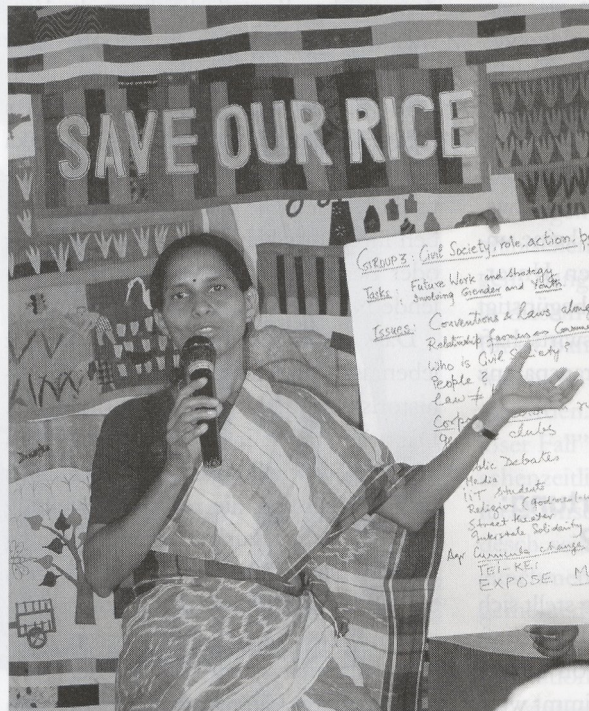 SAVE OUR RICE
GROUP 3: Civil Society, role, action,
Tasks: Future Work and Strategy
Involving Gender and Youth
Issues: Conventions & Laws
Relationship farmers
Who is Civil Society?
People ?
Law ≠
clubs
Debates
Media
IIT Students
Religion
Street theater
Interstate Solidarity
Curricula change
TEI-KEI
EXPOSE M